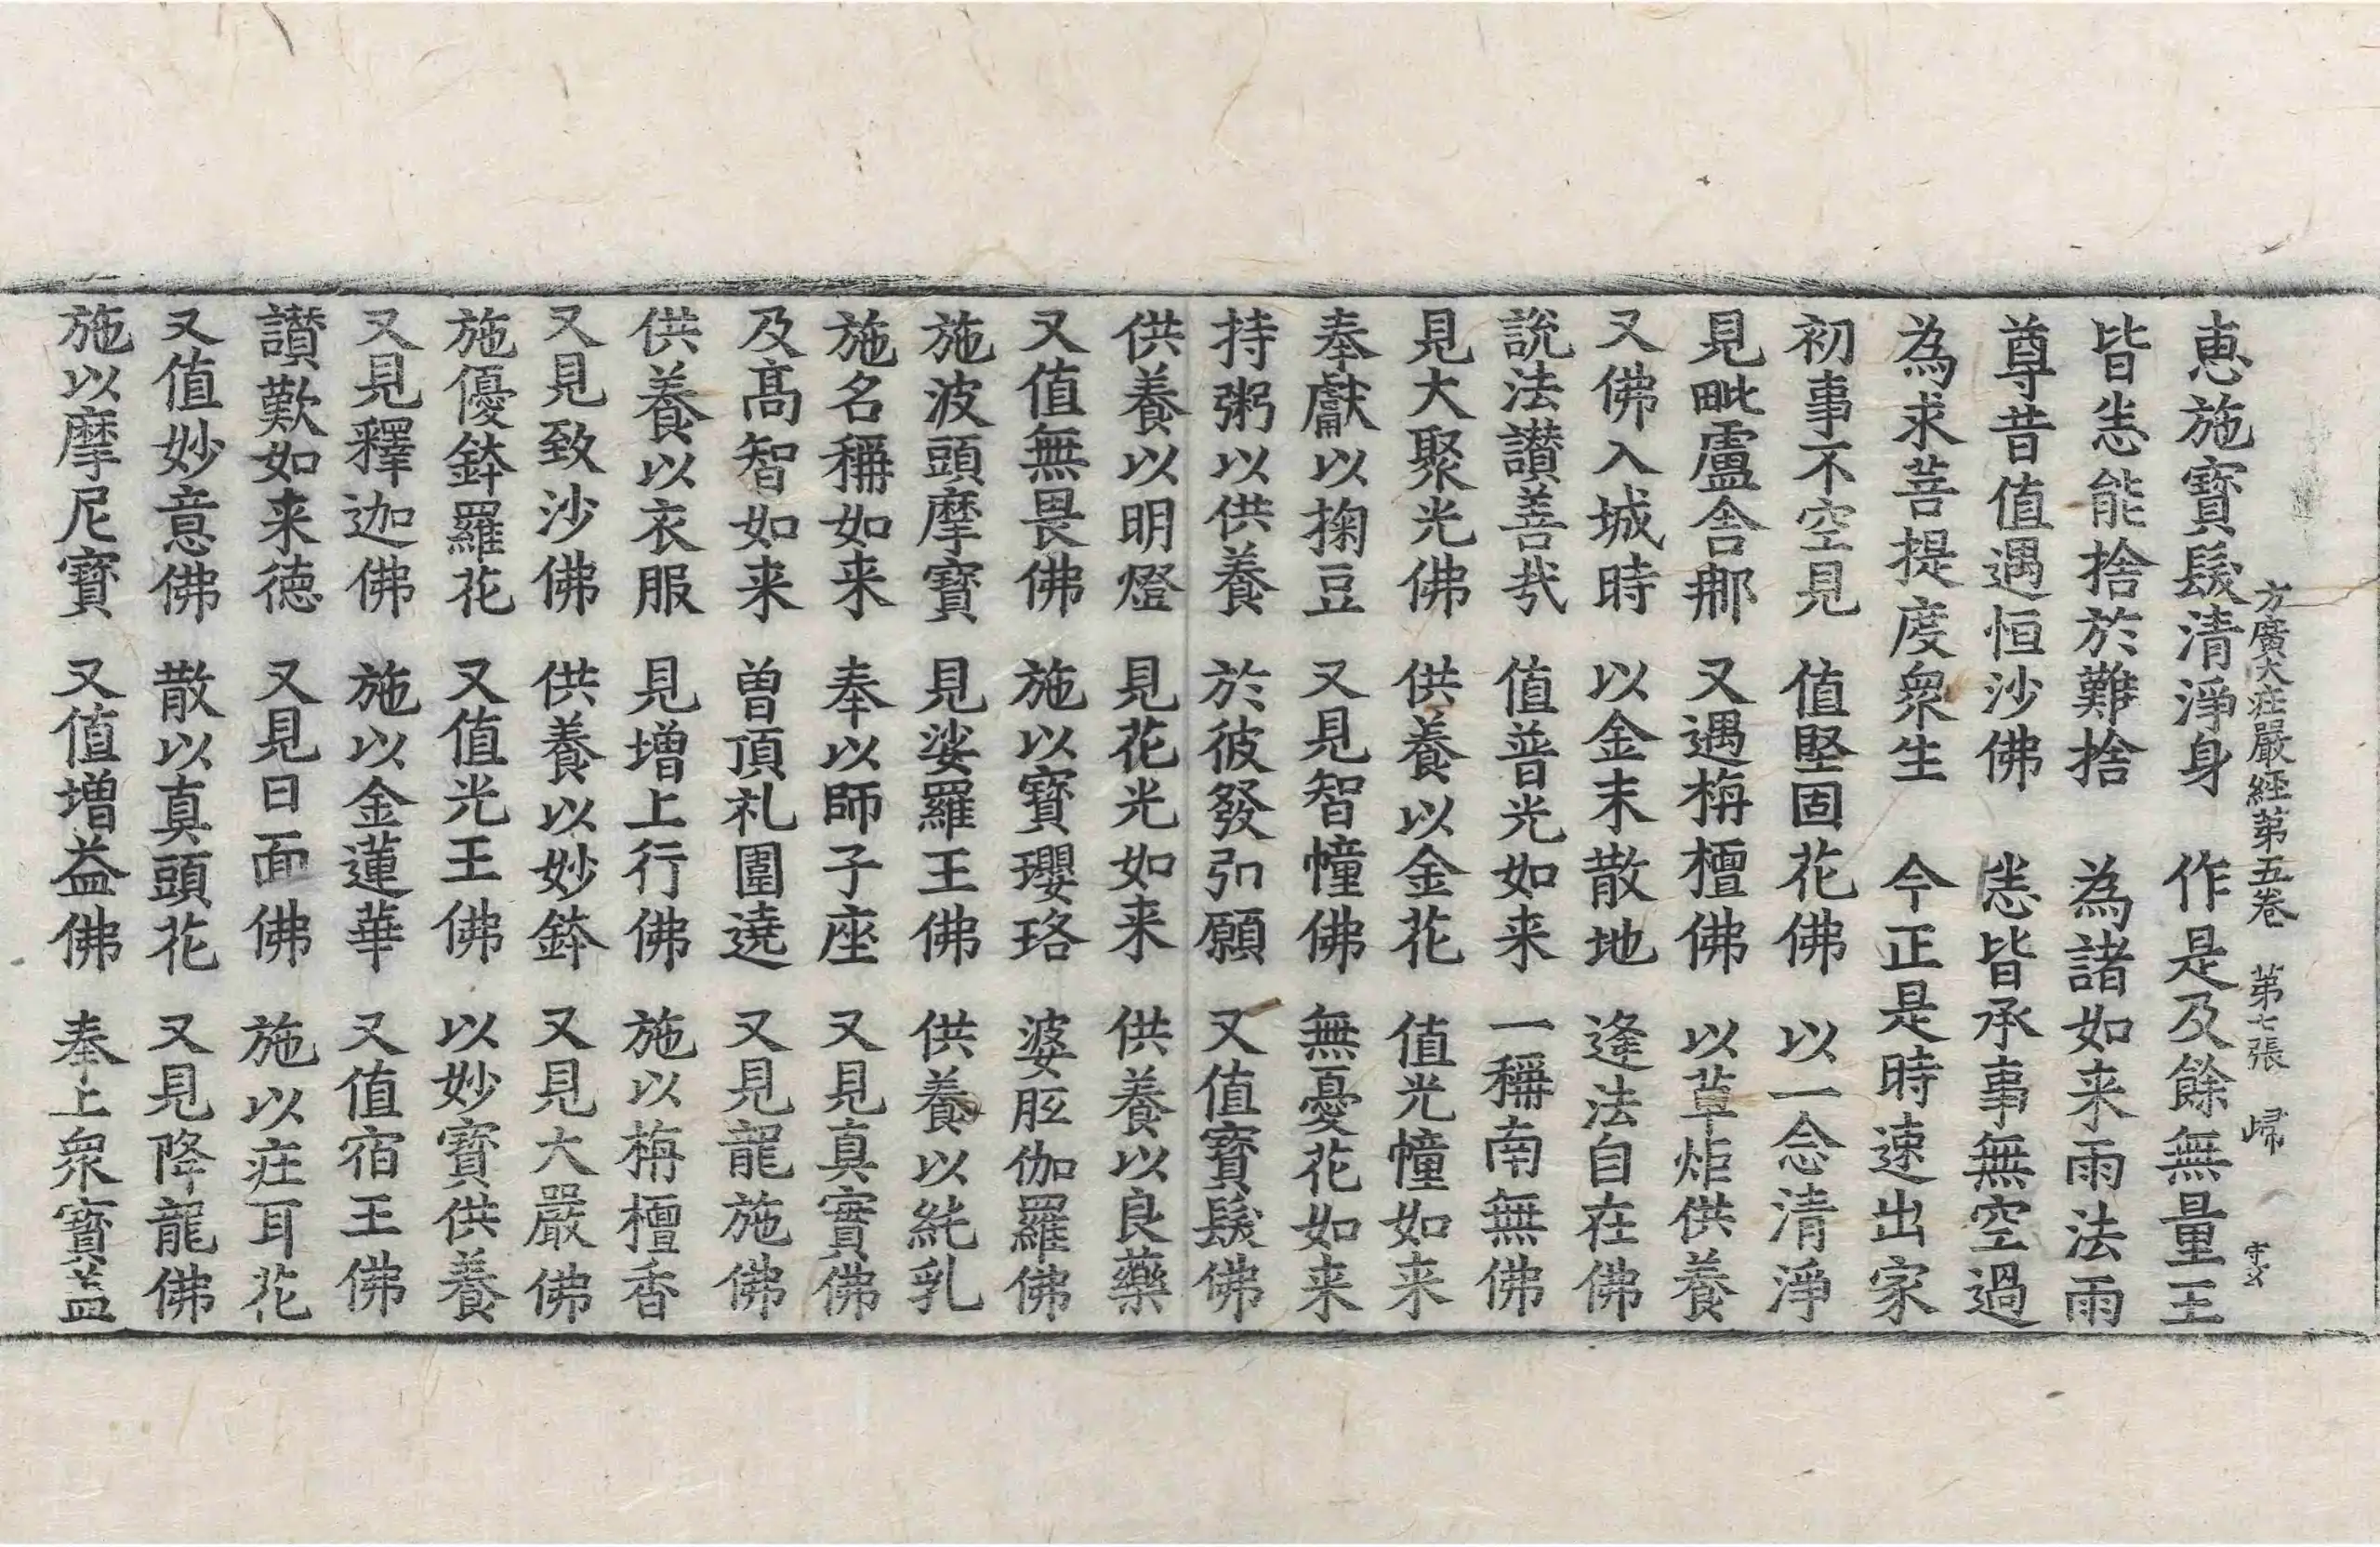 恵施寶髮清淨身 作是及餘無量王
方廣大莊嚴經第五卷 第七張 歸 宋父
皆悉能捨於難捨 為諸如来雨法雨
尊昔值遇恒沙佛 悉皆承事無空過
為求菩提度衆生 今正是時速出家
初事不空見 值堅固花佛 以一念清淨
見毗盧舍那 又遇栴檀佛 以草炬供養
又佛入城時 以金末散地 逢法自在佛
說法讃善哉 值普光如来 一稱南無佛
見大聚光佛 供養以金花 值光幢如来
奉獻以掬豆 又見智幢佛 無憂花如来
持粥以供養 於彼發弘願 又值寶髮佛
供養以明燈 見花光如来 供養以良藥
又值無畏佛 施以寶瓔珞 婆胝伽羅佛
施波頭摩寶 見娑羅王佛 供養以純乳
施名稱如来 奉以師子座 又見真實佛
及高智如来 曽頂礼圍遶 又見龍施佛
供養以衣服 見增上行佛 施以栴檀香
又見致沙佛 供養以妙鉢 又見大嚴佛
施優鉢羅花 又值光王佛 以妙寶供養
又見釋迦佛 施以金蓮華 又值宿王佛
讃歎如来德 又見日面佛 施以莊耳花
又值妙意佛 散以真頭花 又見降龍佛
施以摩尼寶 又值增益佛 奉上衆寶盖